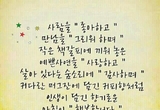 사람을 " 좋아하고 "
만남을 " 그리워 하며 "
작은 책갈피에 끼워 놓은
예쁜 사연을 " 사랑하고 "
살아 있다는 숨소리에 " 감사하며 "
커다란 머그잔에 담긴 커피향처럼
인생이 담긴 향기로운
아침이 " 행복합니다 "